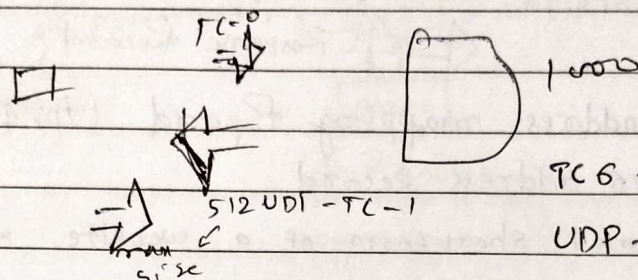 TC-0
1000
TC6
512 UDP-TC-1
UDP-
size